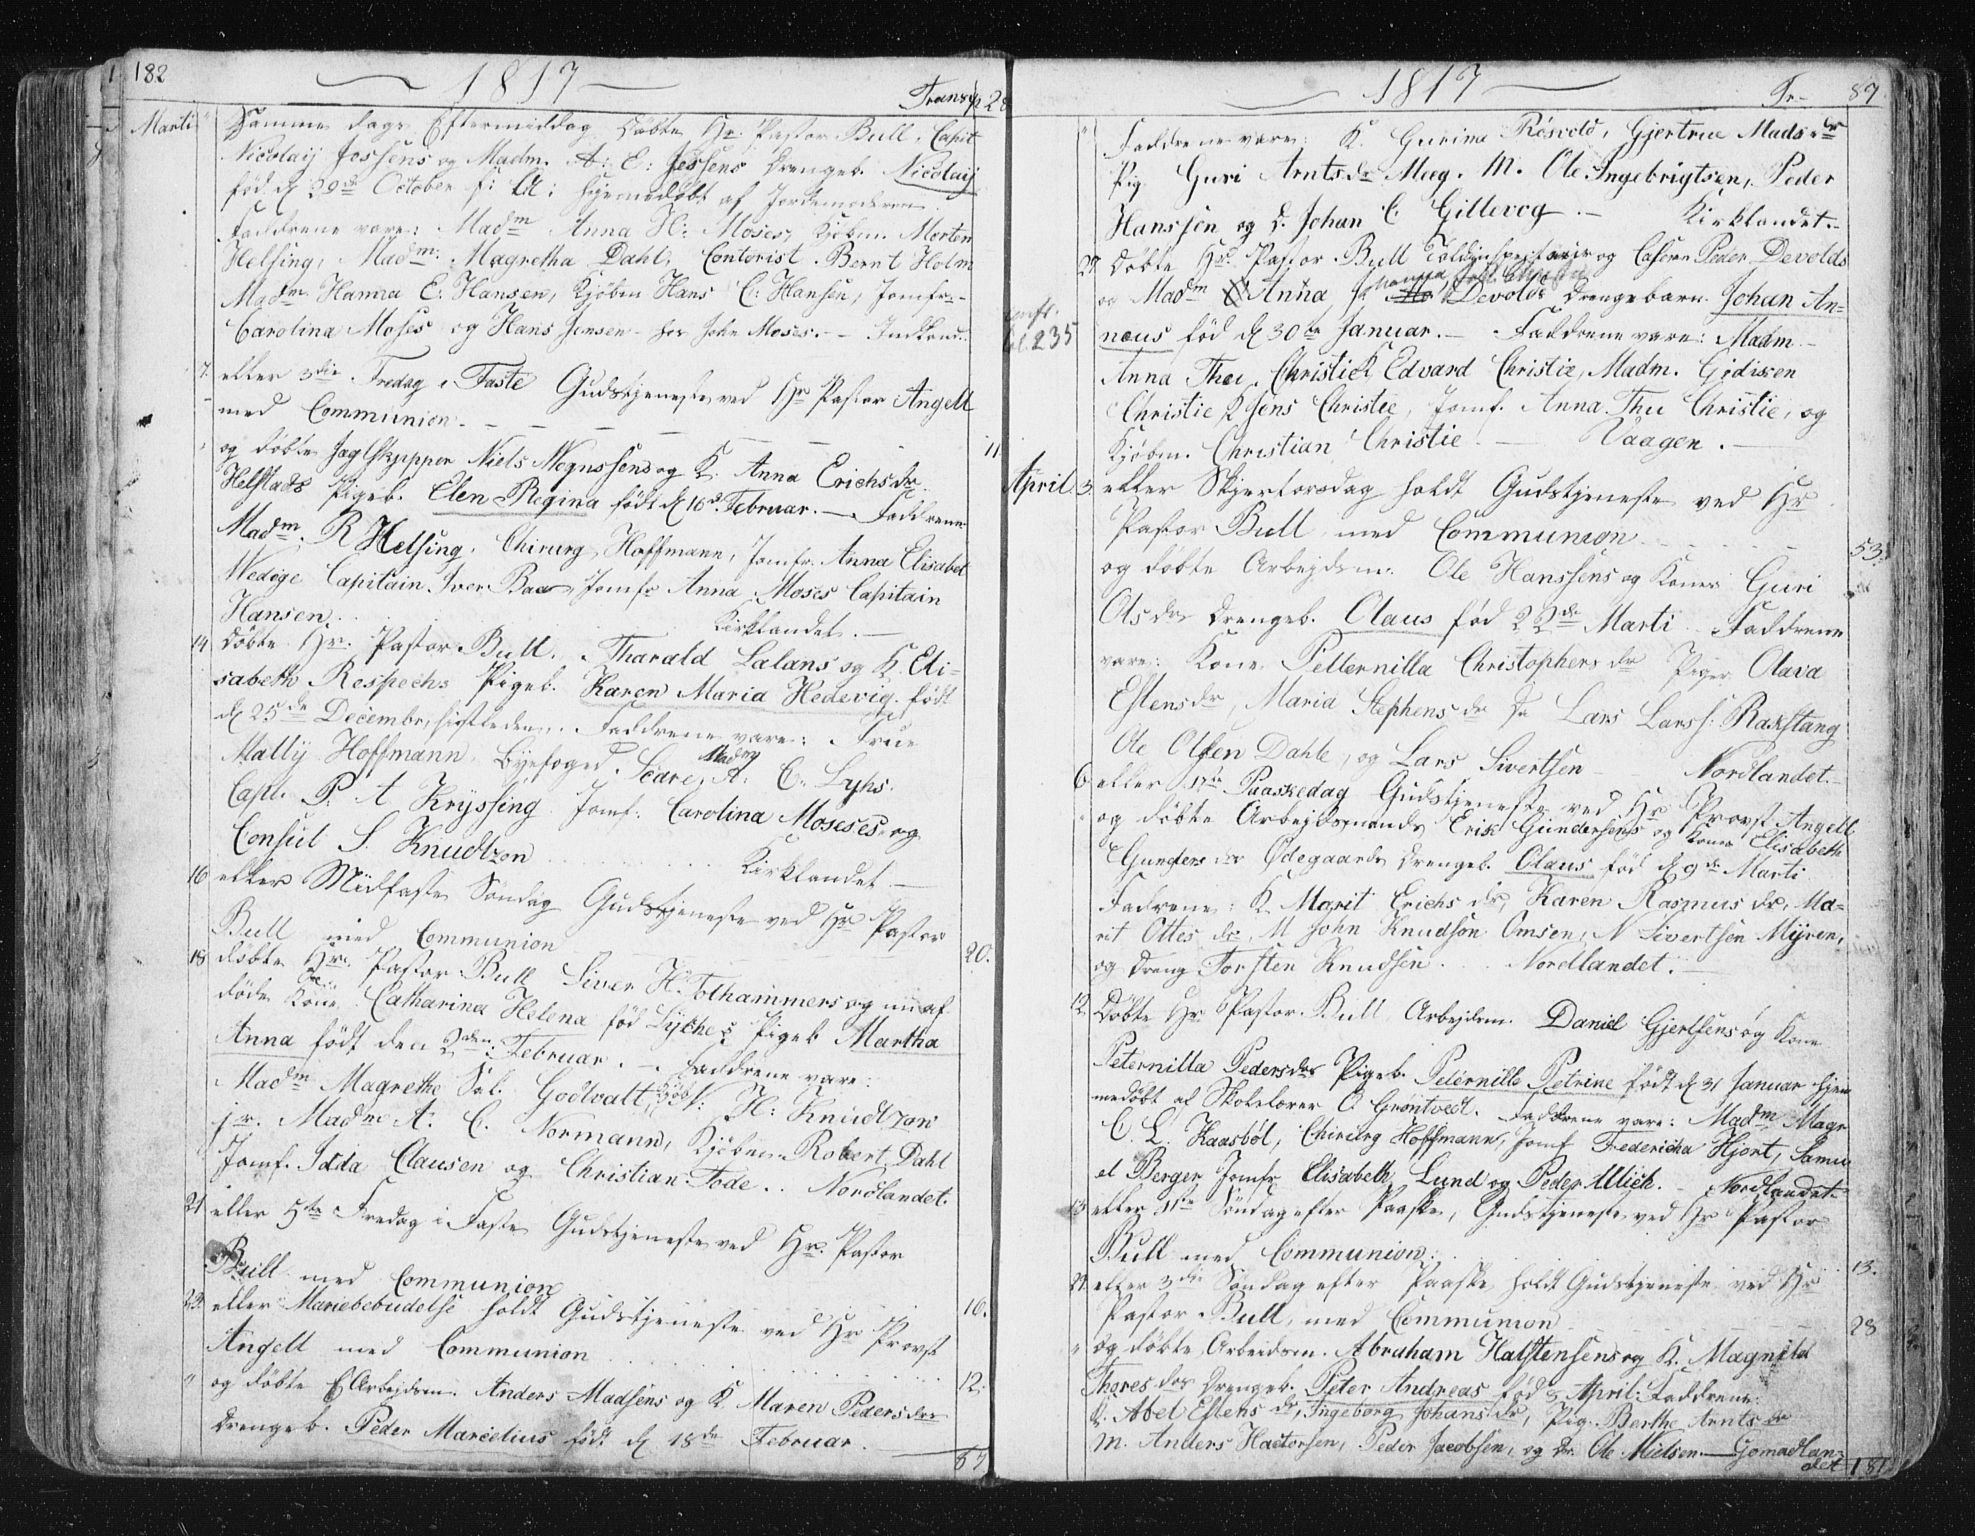 182
1817
Transp 28
Marti " Samme Dags Eftermiddag döbte Hr: Pastor Bull. Capit
Nicolaij Jessens og Madm. A: E: Jessens Drengeb. Nicolaij
fød d 29de October f: A: hjemmedøbt af Jordemoderen
Faddrene vare: Madm Anna H: Moses, Kjöbm. Morten
Helsing, Madm: Magretha Dahl, Contorist Bernt Holm
Madm Hanna E: Hansen, Kjöbm Hans C: Hansen, Jomfr:
Carolina Moses og Hans Jensen hos John Moses. - Indland
7. eller 3die Fredag i Faste Gudstjeneste ved Hr Pastor Angell
med Communion 11
og döbte Jagtskipper Niels Mognssens og K. Anna Erichsdr
Helstads Pigeb. Elen Regina födt d 16d Februar. - Faddrene
Madm. R Helsing, Chirurg Hoffmann, Jomfr. Anna Elisabet
Wedege Capitain Iver Baa, Jomfr Anna Moses Capitain
Hansen. Kirklandet. -
14 döbte Hr. Pastor Bull. Tharald Lalans og K. Eli-
sabeth Respechs Pigeb. Karen Maria Hedevig. födt
d 25de Decembr, sistleden. Faddrene vare: Frue
Mally Hoffmann Byefoged Leare, Madm A: C. Lyhs.
Capt. P. A Kryssing Jomf. Carolina Moseses og
Consul S. Knudtzon Kirklandet -
16 eller Midfaste Söndag Gudstjeneste ved Hr Pastor
Bull med Communion 20.
18 döbte Hr. Pastor Bull Siver H. Tothammers og nu af
döde Kone Catharina Helena fød Lyches Pigeb Martha
Anna födt den 2den Februar. - Faddrene vare:
Madm Magrethe Sal. Godtvatt, Kjöbm. N: H: Knudtzon
jr. Madme A. C. Normann, Kjöbm. Robert Dahl
Jomf. Idda Clausen og Christian Tode. . Nordlandet.
21 eller 5te Fredag i Faste Gudstjeneste ved Hr. Pastor
Bull med Communion 16.
23. eller Mariebebudelse holdt Gudstjeneste ved Hr Provst
Angell med Communion 12.
" og döbte Arbejdsm. Anders Madsens og K Maren Pedersdr
Drengeb. Peder Marcelius födt d 18de Februar.
87
1817
Tr- 87
" Faddrene vare: K. Gurina Rösvold, Gjertrue Madsdr
Pig Guri Arntsdr Meeg. M. Ole Ingebrigtsen, Peder
Hanssen og D. Johan C. Gillevog. - Kirklandet.-
27 döbte Hr Pastor Bull Toldinspecteur og Casser Peder Devolds
og Madm Anna J. Devolds Drengebarn Johan An-
conf. bl 235
næus fød d 30te Januar. - Faddrene vare: Madm
Anna Thee. Christie K Edvard Christie, Madm. Gidisen
Christie K Jens Christie, Jomf. Anna Thu Christie, og
Kjöbm. Christian Christie - Vaagen. -
April 3. eller Skjertorsdag holdt Gudstjeneste ved Hr
Pastor Bull med Communion 53.
og döbte Arbejdsm. Ole Hanssens og Kone Guri
Olsdr Drengeb. Olaus fød 22de Marti Faddrene
vare: Kone Petternilla Christophersdr Piger Olava
Estensdr, Maria Stephensdr Dr Lars Larss: Rakstang
Ole Olsen Dahle, og Lars Sivertsen - Nordlandet.-
6 eller 1ste Paaskedag Gudstjeneste ved Hr Provst Angell
og döbte Arbejdsmands Erik Gundersens og Kone Elisabeth
Gundersdr Ødegaards Drengeb. Olaus fød d 9de Marti
Fadrene: K Marit Erichsdr, Karen Rasmusdr, Ma-
rit Ottesdr, M John Knudsön Omsen, N Sivertsen Myren,
og Dreng Torsten Knudsen. Nordlandet. -
12. döbte Hr Pastor Bull Arbejdsm. Daniel Gjertsens og Kone
Peternilla Pedersdr Pigeb. Peternille Petrine födt d 31 Januar hjem
medöbt af Skolelærer O. Grøntvedt. Faddrene vare: Madm Magr
C. L. Kaasböl, Chirurg Hoffmann, Jomf Fredericha Hjort, Samu
el Berger Jomfr Elisabeth Lund og Peder Ulich. - Nordlandet
13 eller 1ste Söndag efter Paaske, Gudstjeneste ved Hr Pastor
Bull med Communion: 13.
27. eller 3die Söndag efter Paaske holdt Gudstjeneste ved Hr
Pastor Bull, med Communion 28
" og döbte Arbeidsm. Abraham Halstensens og K. Magnild
Thoresdrs Drengeb. Peter Andreas fød 3 April: Faddrene:
K: Abel Estensdr, Ingeborg Johansdr, Pig. Berthe Arntsdr
M. Anders Hactorsen, Peder Jacobsen, og Dr. Ole Nielsen. Gomadlan-
det 181